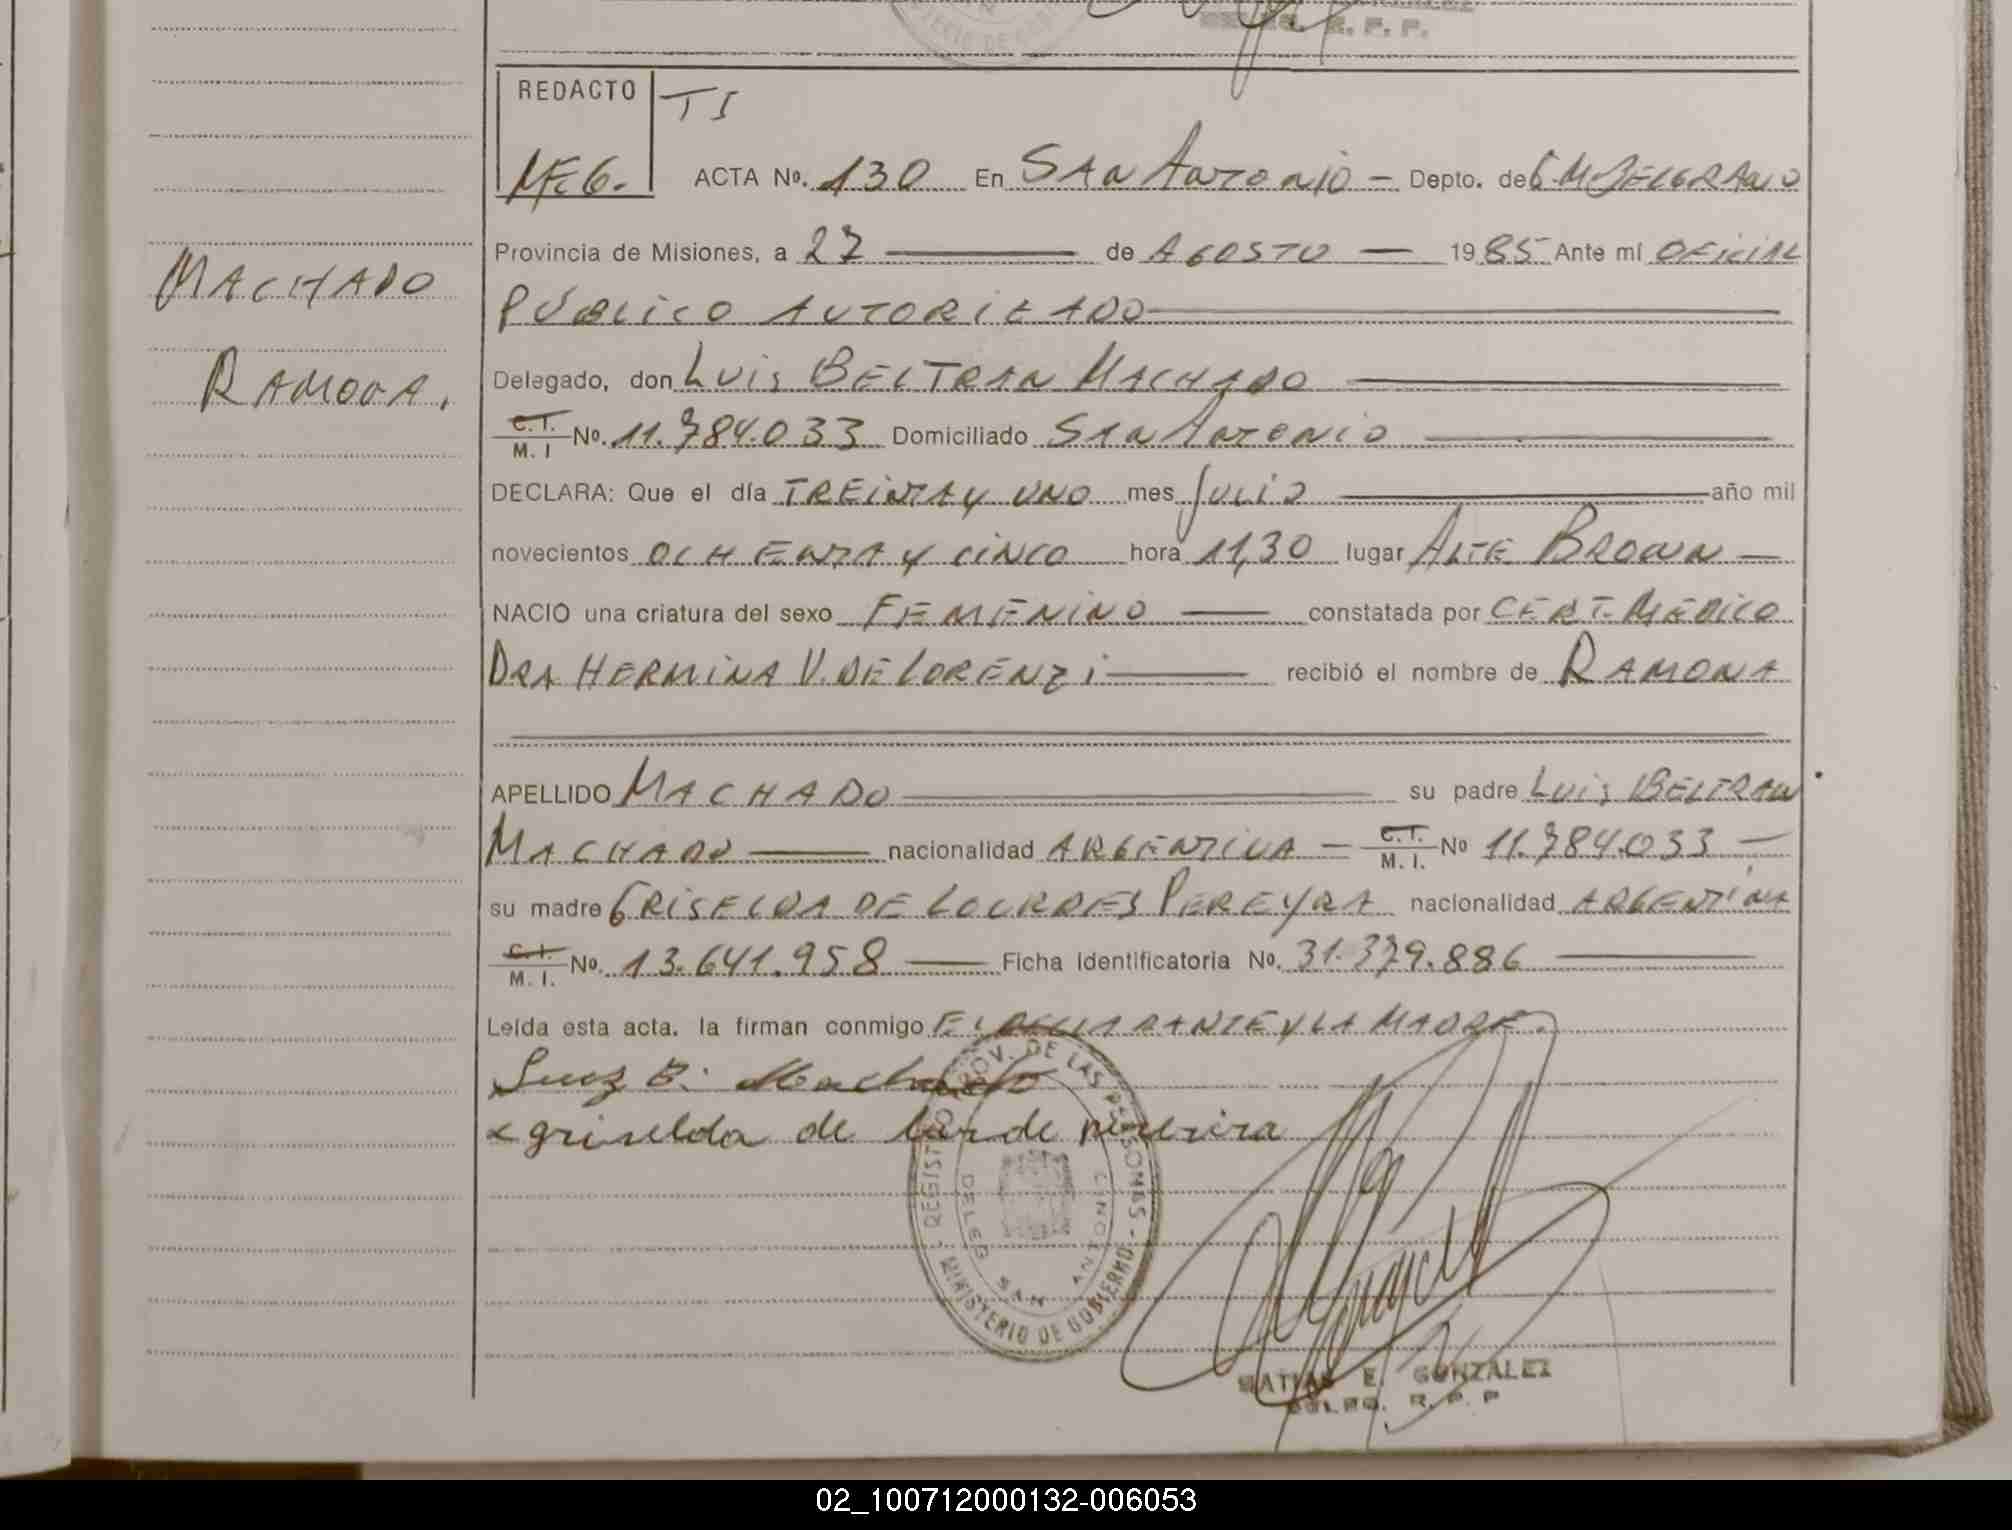 R. P. P.
REDACTO
TI
M.E.G.
ACTA Nº. 130 En San Antonio - Depto. de G.M.Belgrano
Provincia de Misiones, a 27 de Agosto 1985 Ante mí Oficial
Público Autorizado
MACHADO
Delegado, don Luis Beltran Machado
RAMONA.
C.I. M. I Nº. 11.784.033 Domiciliado San Antonio
DECLARA: Que el día TREINTA y UNO mes Julio año mil
novecientos OCHENTA y CINCO hora 11,30 lugar ALTE BROWN
NACIO una criatura del sexo FEMENINO constatada por CERT. MEDICO
DRA HERMINA V. DE LORENZI recibió el nombre de RAMONA
APELLIDO MACHADO su padre Luis BELTRAN
MACHADO nacionalidad ARGENTINA - C.I. M. I. Nº 11.784.033 -
su madre GRISELDA DE LOURDES PEREYRA nacionalidad ARGENTINA
C.I. M. I. Nº. 13.641.958 Ficha identificatoria Nº. 31.379.886
Leída esta acta. la firman conmigo EL DECLARANTE Y LA MADRE.
Luiz B. Machado
griselda de lurde pereira
REGISTRO PROV. DE LAS PERSONAS
MINISTERIO DE GOBIERNO
MATIAS E. GONZALEZ
R. P. P
02_100712000132-006053